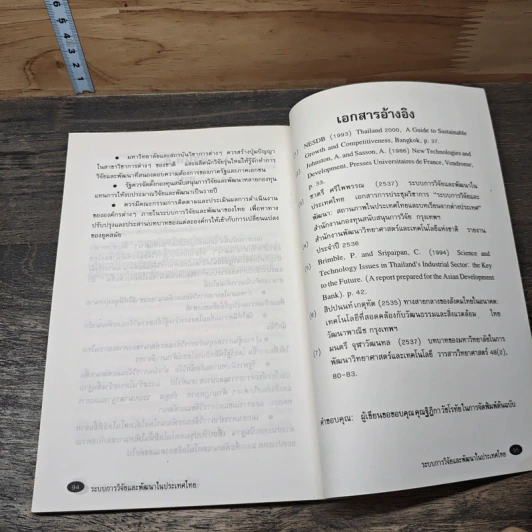 ● มหาวิทยาลัยและสถาบันวิชาการต่างๆ ควรสร้างภูมิปัญญา
ในสาขาวิชาการต่างๆ ของชาติ และผลิตนักวิจัยรุ่นใหม่ให้รู้จักทำการ
วิจัยและพัฒนาที่สนองตอบความต้องการของภาครัฐและภาคเอกชน
● รัฐควรจัดตั้งกองทุนสนับสนุนการวิจัยและพัฒนาหลายกองทุน
แทนการให้งบประมาณวิจัยและพัฒนาเป็นรายปี
● ควรมีคณะกรรมการติดตามและประเมินผลการดำเนินงาน
ขององค์กรต่างๆ ภายในระบบวิจัยและพัฒนาของไทย เพื่อหาทาง
ปรับปรุงและประสานบทบาทของแต่ละองค์กรให้เข้ากับการเปลี่ยนแปลง
ของยุคสมัย
94 ระบบการวิจัยและพัฒนาในประเทศไทย
เอกสารอ้างอิง
NESDB (1993) Thailand 2000, A Guide to Sustainable
Growth and Competitiveness, Bangkok, p. 37.
Johnston, A. and Sasson, A. (1986) New Technologies and
Development, Presses Universitaires de France, Vendrome,
p. 33.
ชาตรี ศรีไพพรรณ (2537) ระบบการวิจัยและพัฒนาใน
ประเทศไทย เอกสารการประชุมวิชาการ "ระบบการวิจัยและ
พัฒนา: สถานภาพในประเทศไทยและบทเรียนจากต่างประเทศ"
สำนักงานกองทุนสนับสนุนการวิจัย กรุงเทพฯ
สำนักงานพัฒนาวิทยาศาสตร์และเทคโนโลยีแห่งชาติ รายงาน
ประจำปี 2536
Brimble, P. and Sripaipan, C. (1994) Science and
Technology Issues in Thailand's Industrial Sector: the Key
to the Future. (A report prepared for the Asian Development
Bank). p. 42.
[6] สิปปนนท์ เกตุทัต (2535) ทางสายกลางของสังคมไทยในอนาคต:
เทคโนโลยีที่สอดคล้องกับวัฒนธรรมและสิ่งแวดล้อม ไทย
วัฒนาพานิช กรุงเทพฯ
[7] มนตรี จุฬาวัฒนทล (2537) บทบาทของมหาวิทยาลัยในการ
พัฒนาวิทยาศาสตร์และเทคโนโลยี วารสารวิทยาศาสตร์ 48(2),
80-83.
คำขอบคุณ: ผู้เขียนขอขอบคุณคุณฐิฎิกา วัชโรทัย ในการจัดพิมพ์ต้นฉบับ
ระบบการวิจัยและพัฒนาในประเทศไทย 95